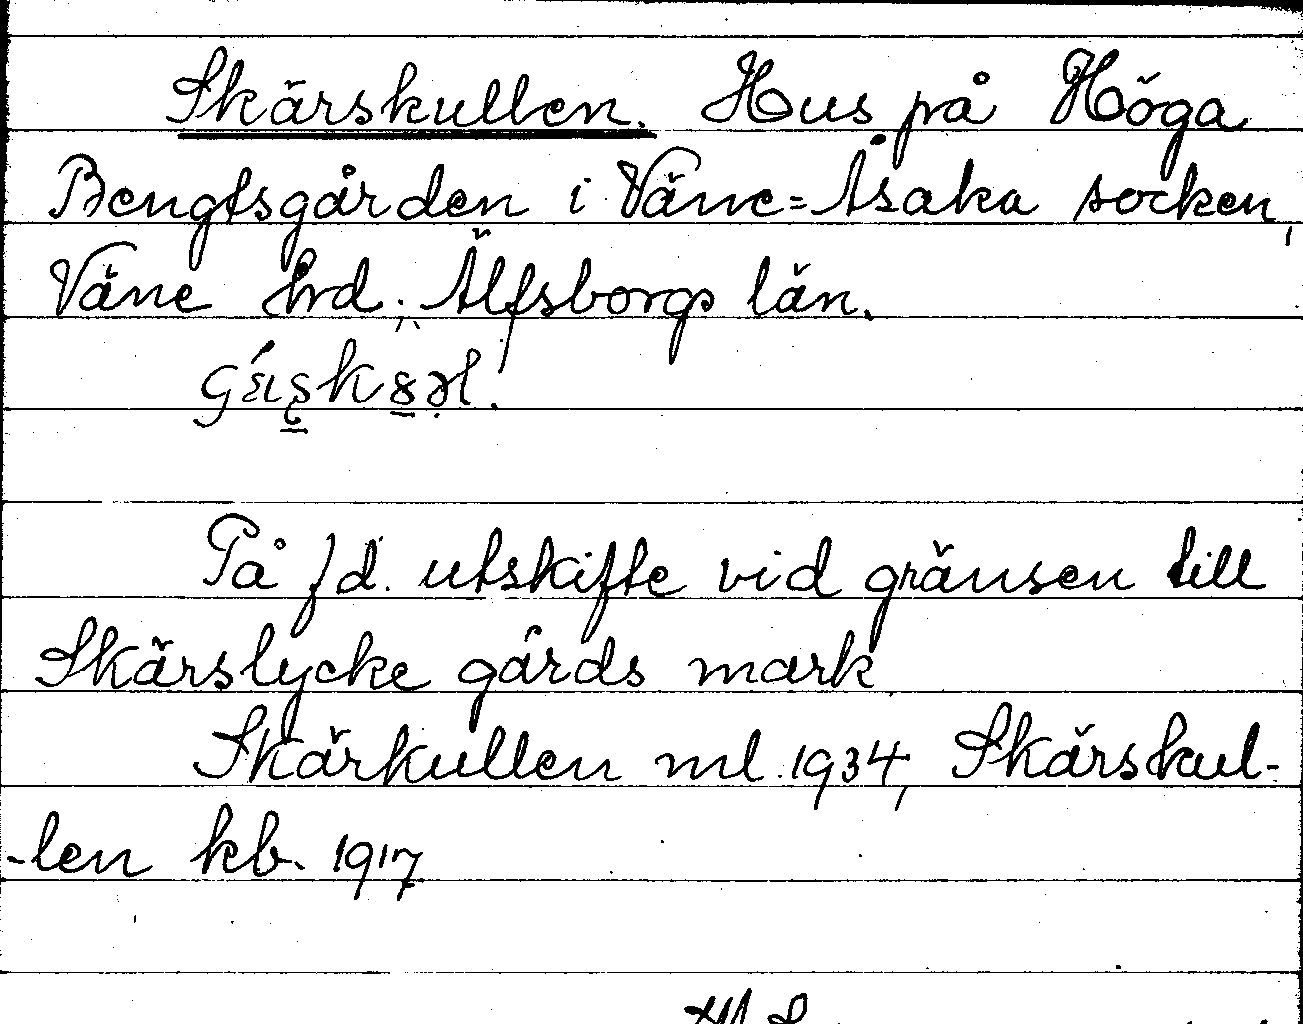 Skärskullen. Hus på Höga
Bengtsgården i Väne=Åsaka socken,
Väne hrd, Älfsborgs län.
På fd. utskifte vid gränsen till
Skärslycke gårds mark
Skärkullen ml. 1934, Skärskul-
-len kb. 1917